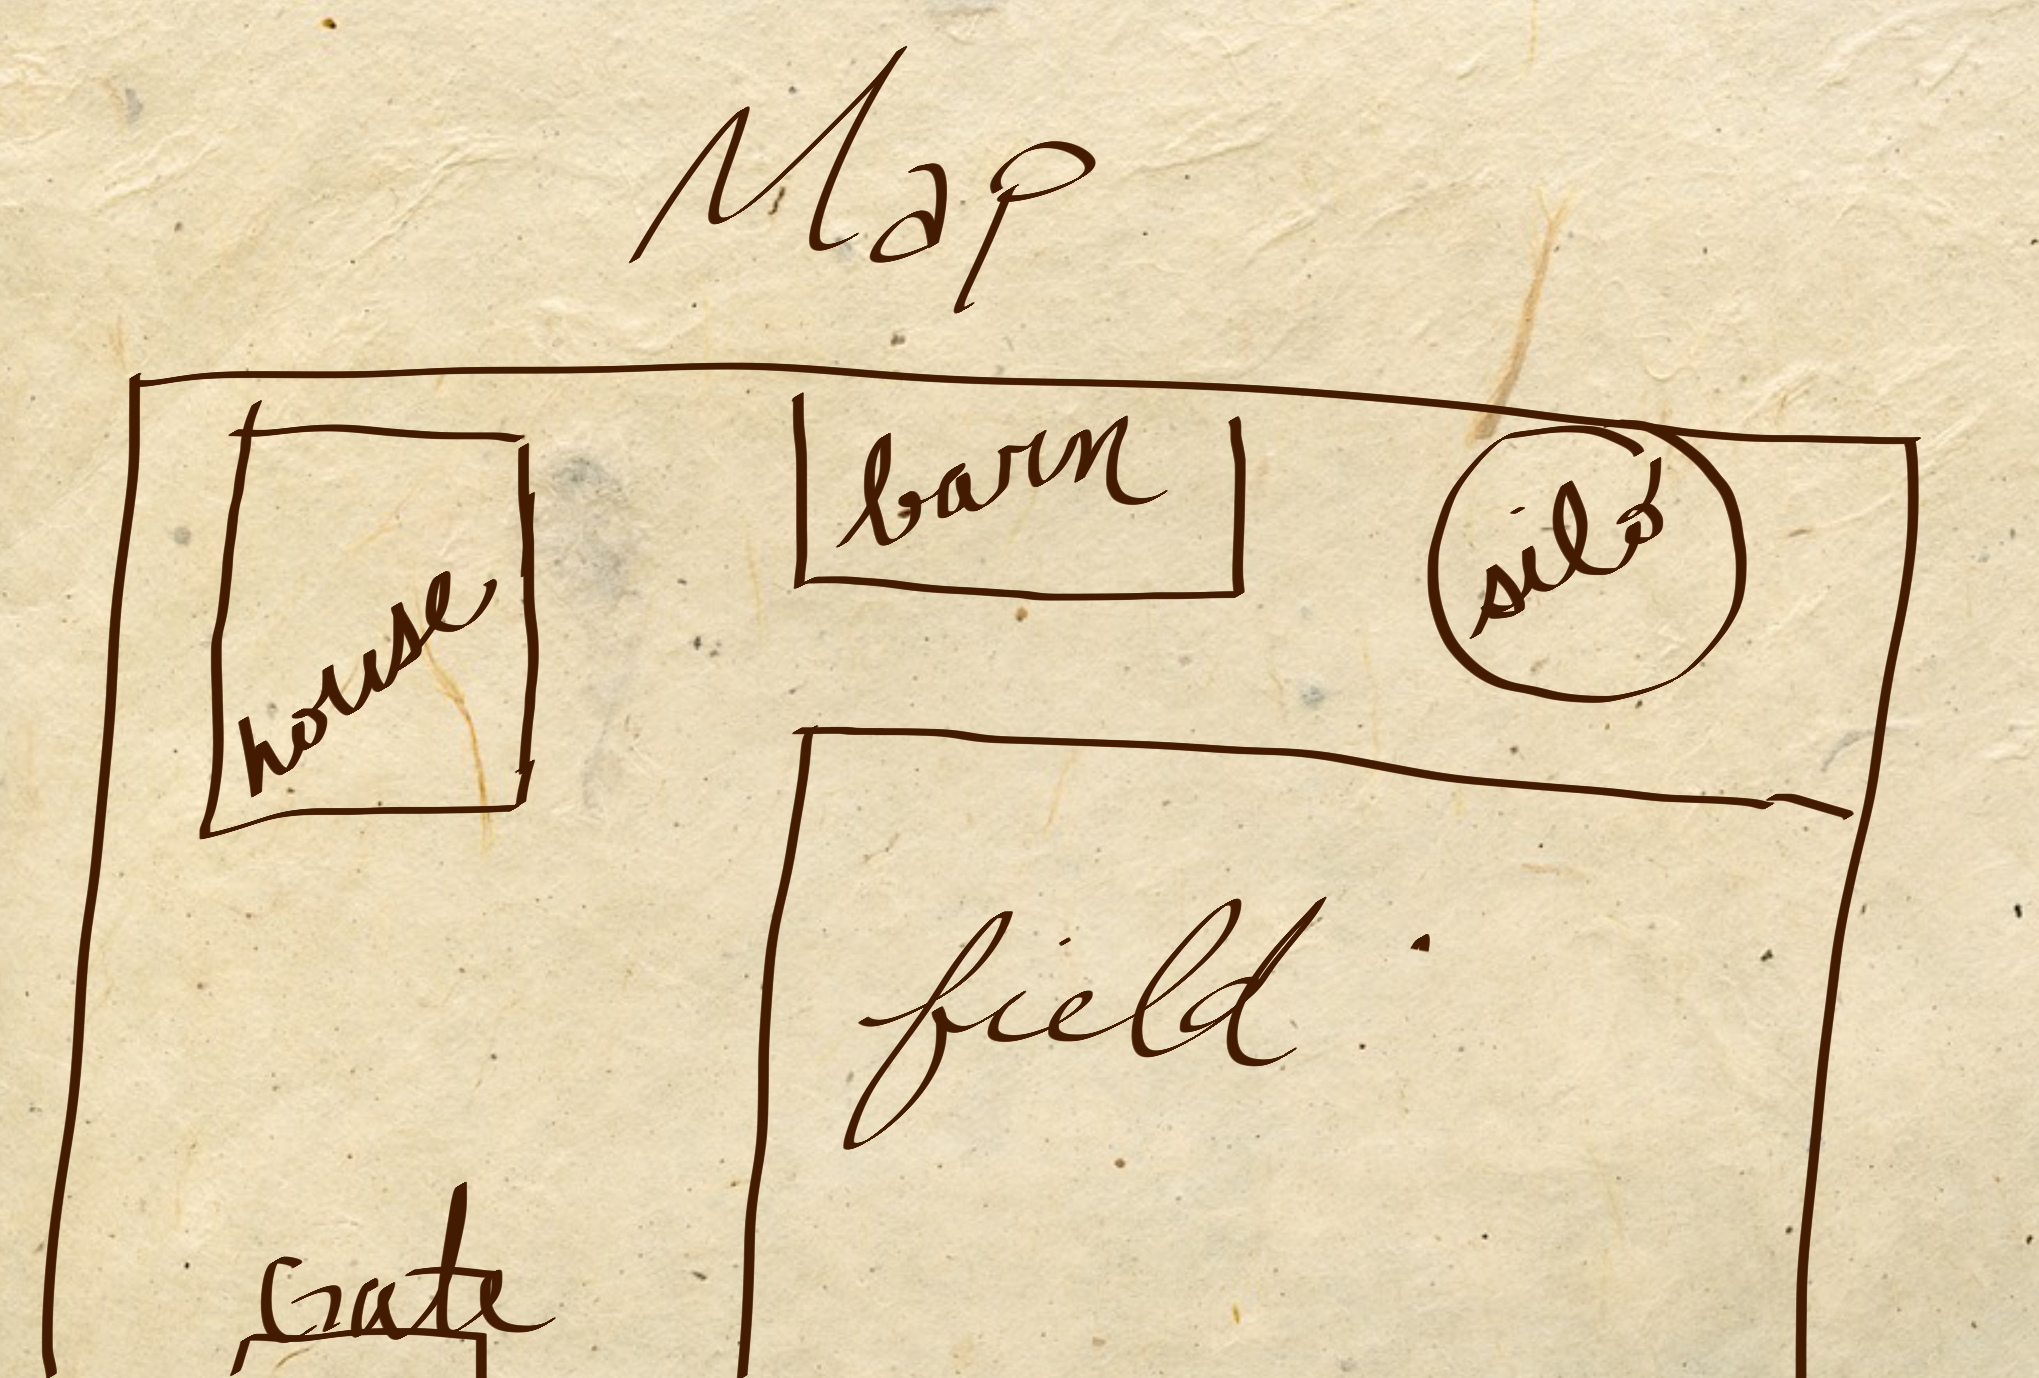 Map
house
barn
silo
field
Gate